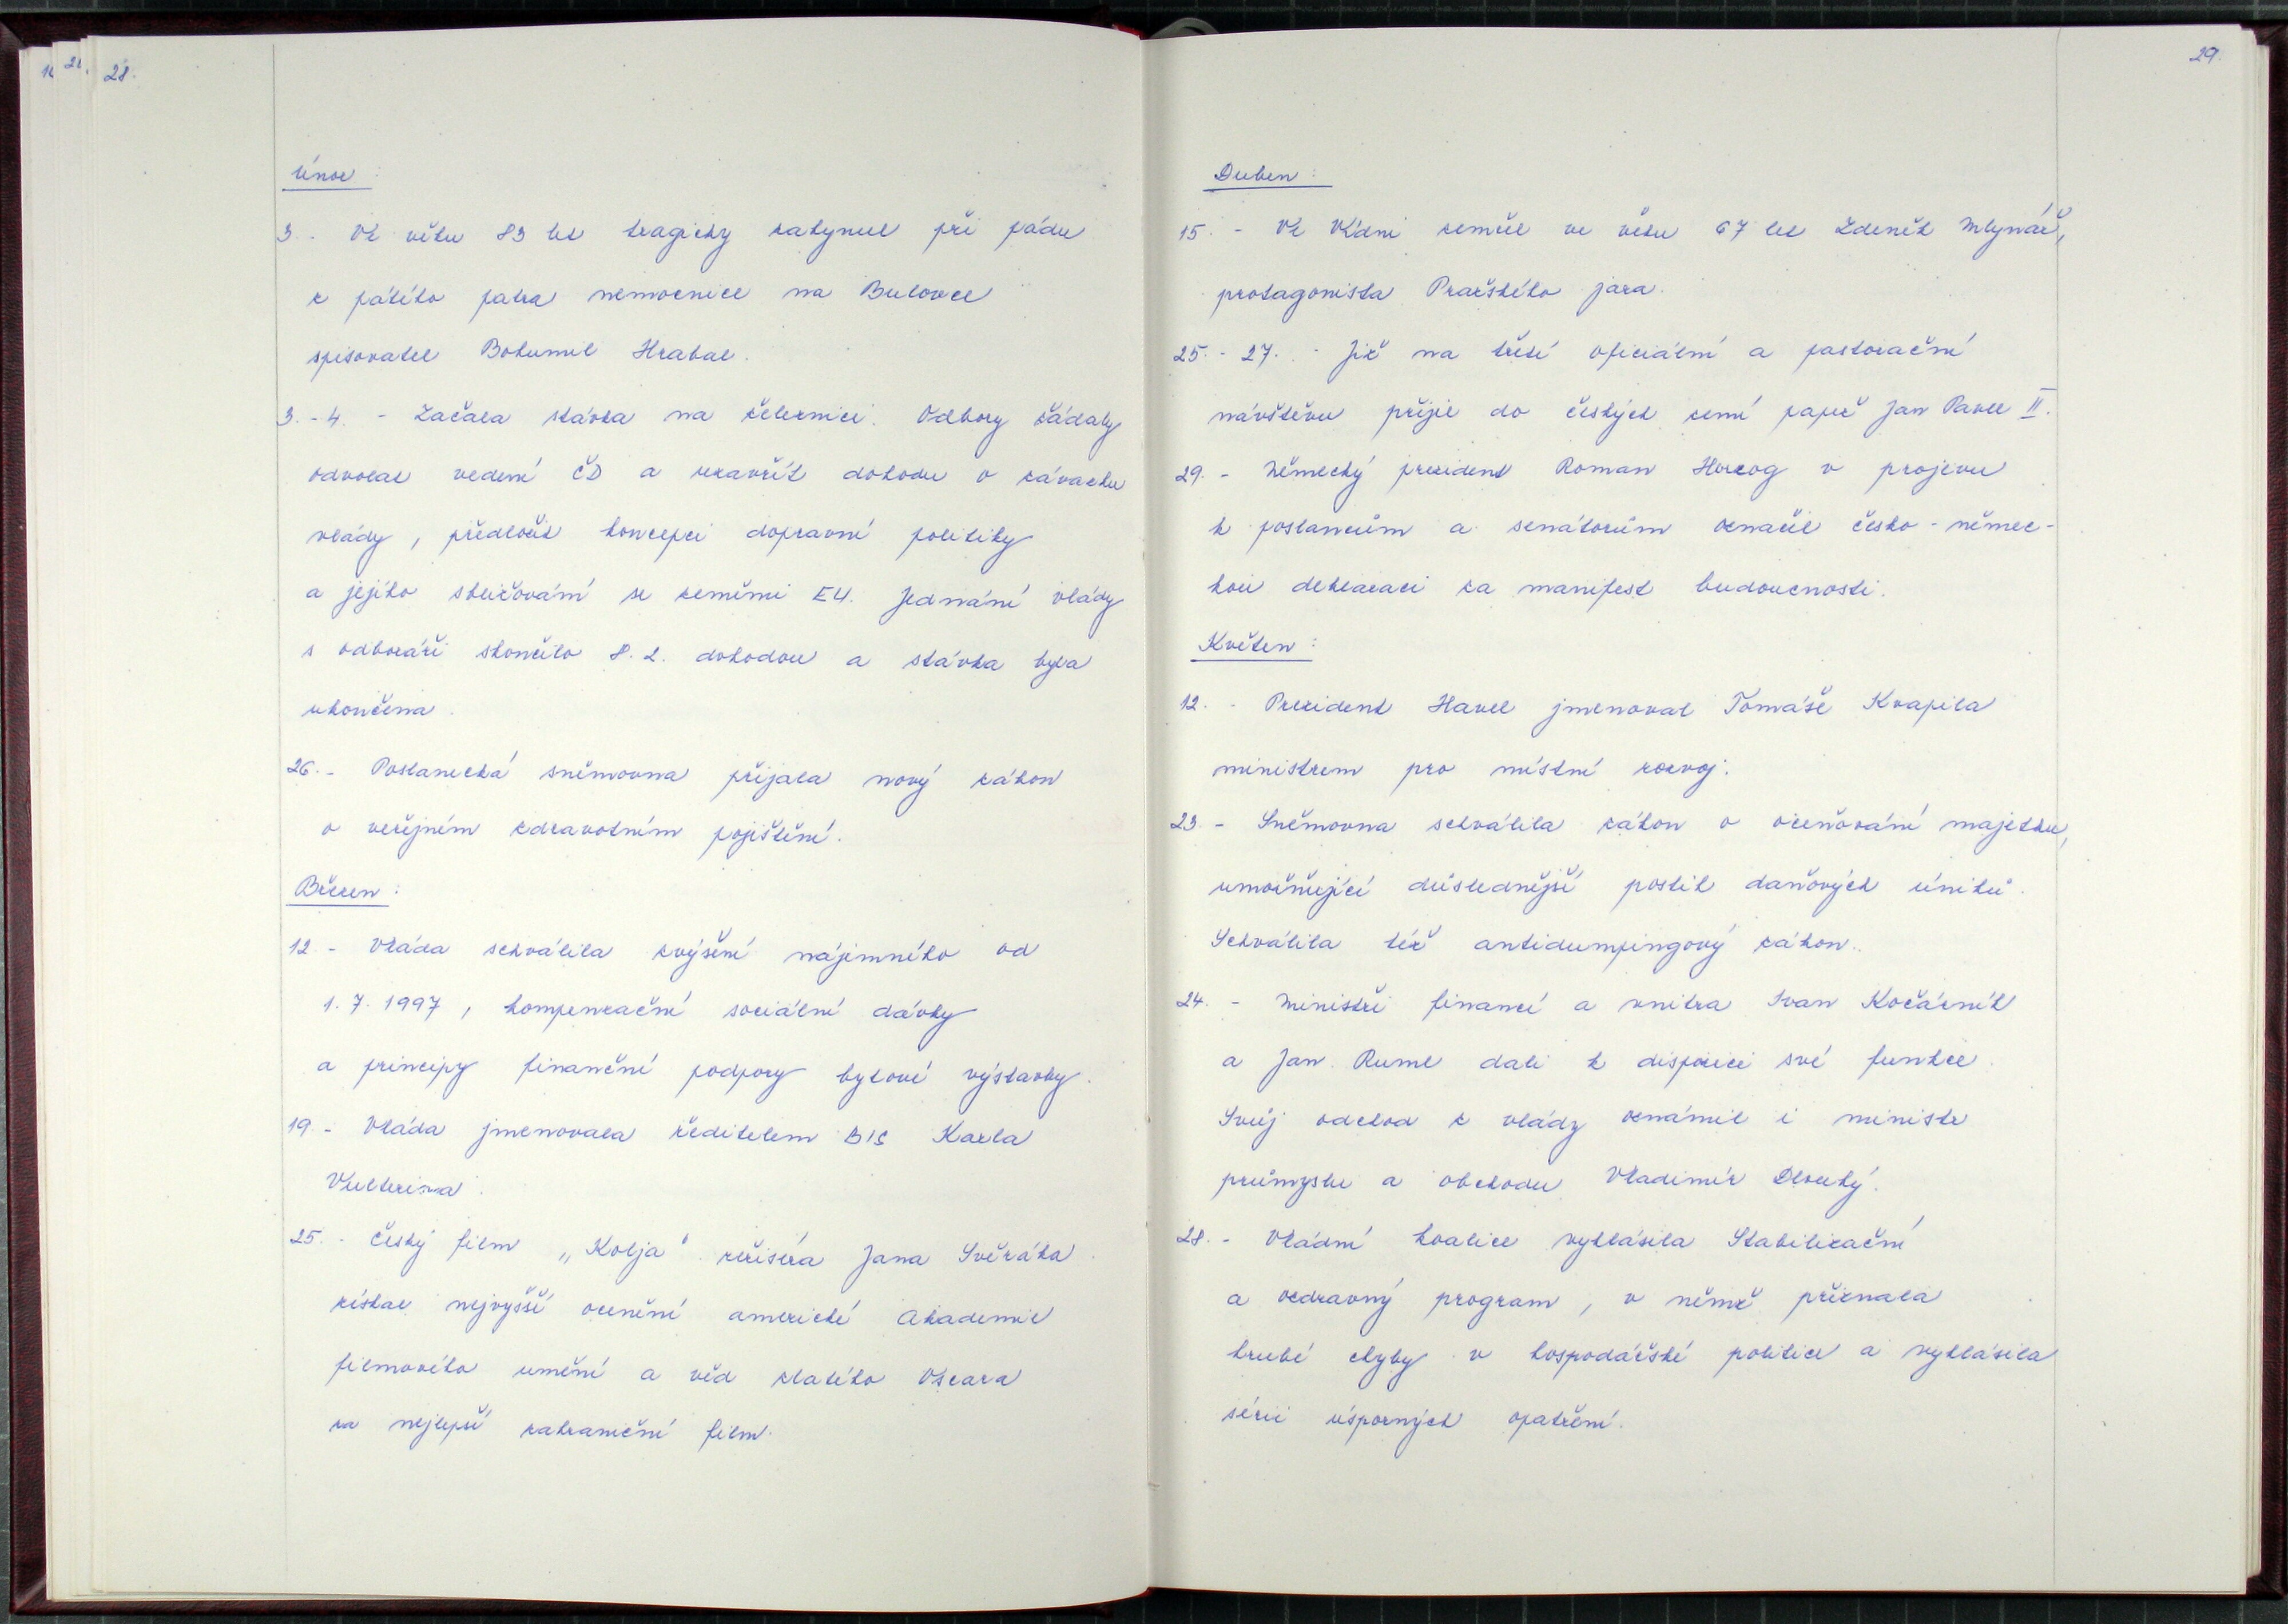 28.
Únor :
3. - Ve věku 83 let tragicky zahynul při pádu
z pátého patra nemocnice na Bulovce
spisovatel Bohumil Hrabal.
3. - 4. - Začala stávka na železnici. Odbory žádaly
odvolat vedení ČD a uzavřít dohodu o závazku
vlády, předložit koncepci dopravní politiky
a jejího sbližování se zeměmi EU. Jednání vlády
s odboráři skončilo 8. 2. dohodou a stávka byla
ukončena.
26. - Poslanecká sněmovna přijala nový zákon
o veřejném zdravotním pojištění.
Březen :
12. - Vláda schválila zvýšení nájemného od
1. 7. 1997, kompenzační sociální dávky
a principy finanční podpory bytové výstavby.
19. - Vláda jmenovala ředitelem BIS Karla
Vulterina.
25. - Český film „Kolja" režiséra Jana Svěráka
získal nejvyšší ocenění americké Akademie
filmového umění a věd zlatého Oscara
za nejlepší zahraniční film.
29.
Duben :
15. - Ve Vídni zemřel ve věku 67 let Zdeněk Mlynář,
protagonista Pražského jara.
25. - 27. - Již na třetí oficiální a pastorační
návštěvu přijel do českých zemí papež Jan Pavel II.
29. - Německý prezident Roman Herzog v projevu
k poslancům a senátorům označil česko - němec-
kou deklaraci za manifest budoucnosti.
Květen :
12. - Prezident Havel jmenoval Tomáše Kvapila
ministrem pro místní rozvoj.
23. - Sněmovna schválila zákon o oceňování majetku,
umožňující důslednější postih daňových úniků.
Schválila též antidumpingový zákon.
24. - Ministři financí a vnitra Ivan Kočárník
a Jan Ruml dali k dispozici své funkce.
Svůj odchod z vlády oznámil i ministr
průmyslu a obchodu Vladimír Dlouhý.
28. - Vládní koalice vyhlásila Stabilizační
a ozdravný program, v němž přiznala
hrubé chyby v hospodářské politice a vyhlásila
sérii úsporných opatření.